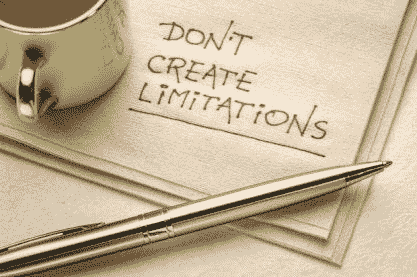 DON'T
CREATE
LIMITATIONS